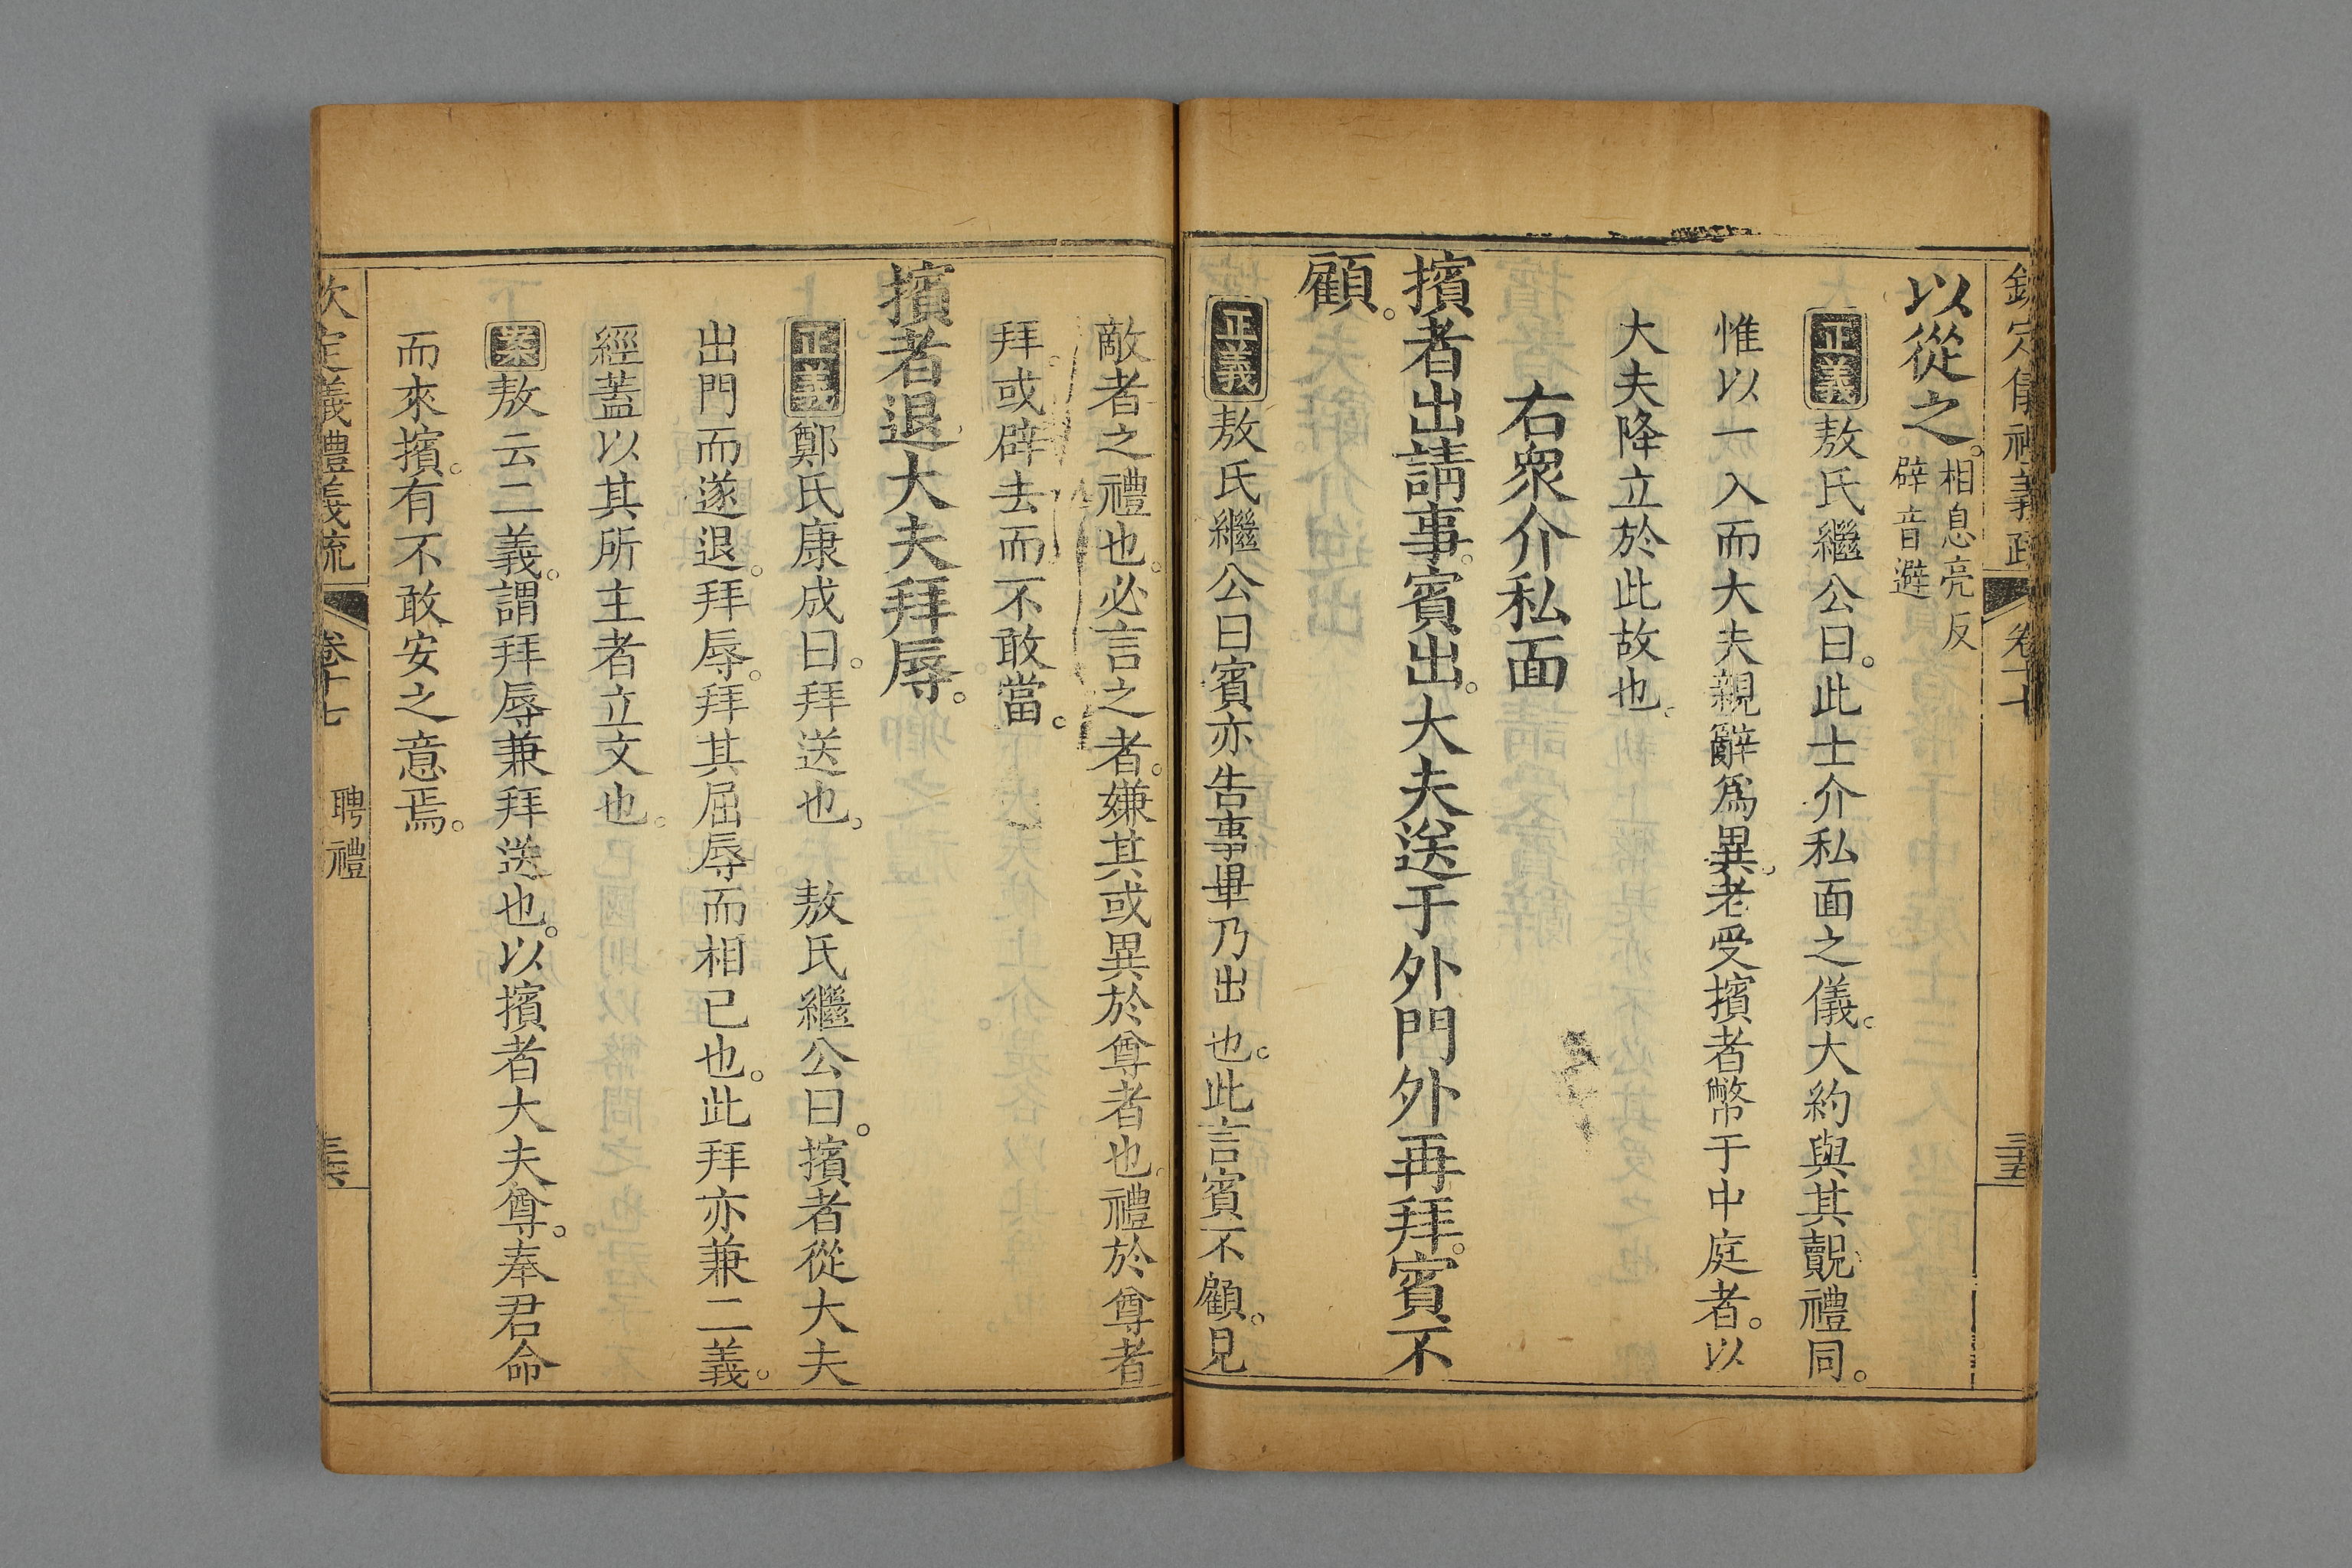 欽定儀禮義疏 卷十七 三五
以從之。相息亮反
辟音避
正義敖氏繼公曰。此士介私面之儀。大約與其覿禮同。
惟以一入而大夫親辭爲異。老受擯者幣于中庭者。以
大夫降立於此故也。
右眾介私面
擯者出請事。賓出。大夫送于外門外再拜。賓不
顧。
正義敖氏繼公曰賓亦告事畢乃出也。此言賓不顧。見
敵者之禮也。必言之者。嫌其或異於尊者也。禮於尊者
拜。或辟去而不敢當。
擯者退大夫拜辱。
正義鄭氏康成曰。拜送也。 敖氏繼公曰。擯者從大夫
出門而遂退。拜辱。拜其屈辱而相已也。此拜亦兼二義。
經蓋以其所主者立文也。
案敖云二義。謂拜辱兼拜送也。以擯者大夫尊。奉君命
而來擯。有不敢安之意焉。
欽定義禮義疏 卷十七 聘禮 三六